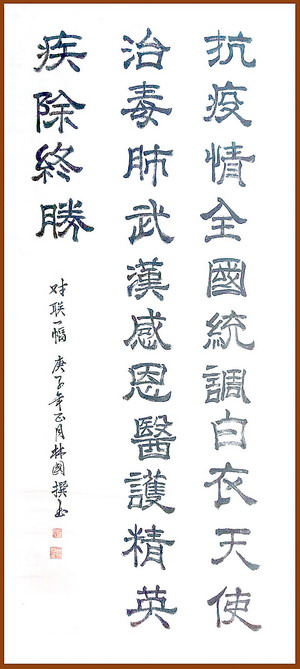 抗疫情全國統調白衣天使
治毒肺武漢感恩醫護精英
疾除終勝
对联一幅 庚子年正月林國撰书